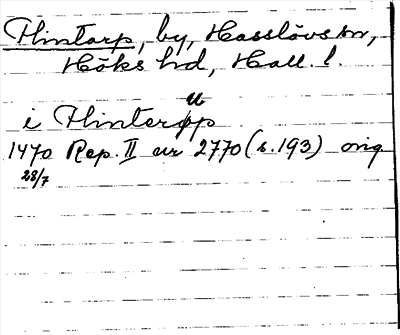 Plintarp, by, Hasslövs sn,
Höks hd, Hall. l.
i Plinterup
1470 Rep. II nr 2770 (s. 193) orig
28/7